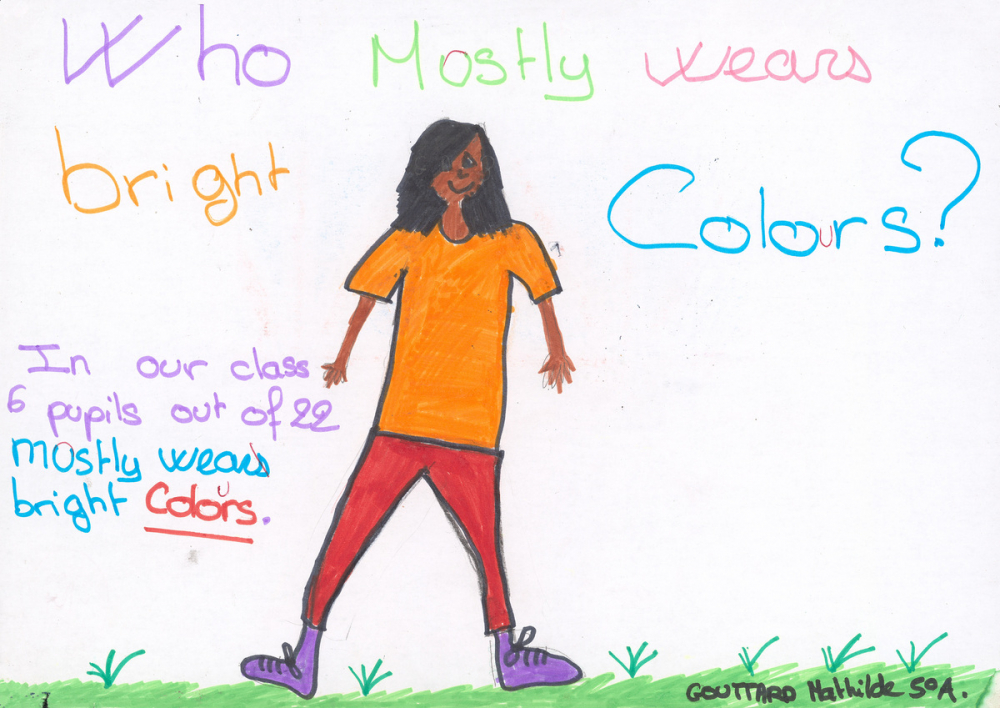 Who Mostly wears
bright Colours?
In our class
6 pupils out of 22
mostly wears
bright Colours.
GOUTTARD Mathilde 5°A.